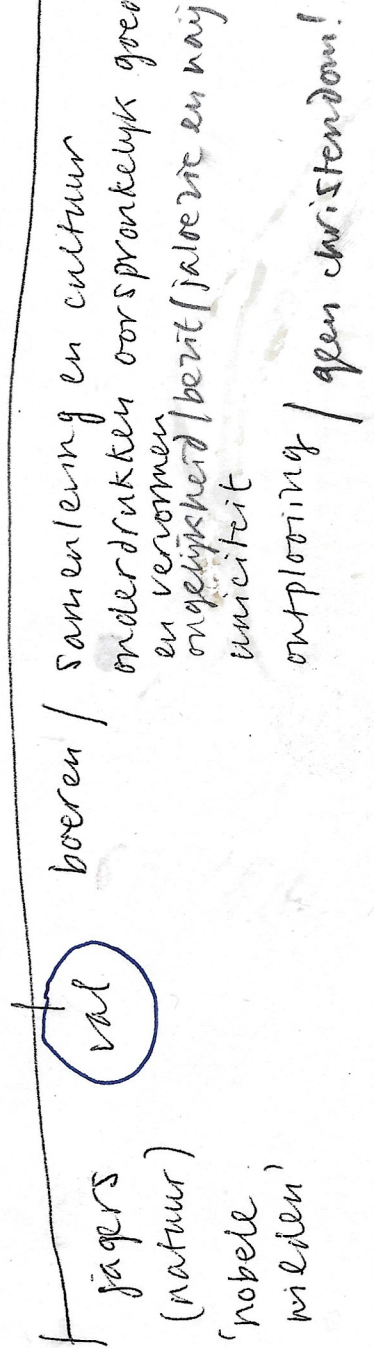 jagers
(natuur)
'nobele
wilden'
val
boeren /
samenleving en cultuur
onderdrukken oorspronkelijk goed
en vervormen
ongelijkheid / bezit / jaloezie en naij
uniciteit
ontplooiing / geen christendom!